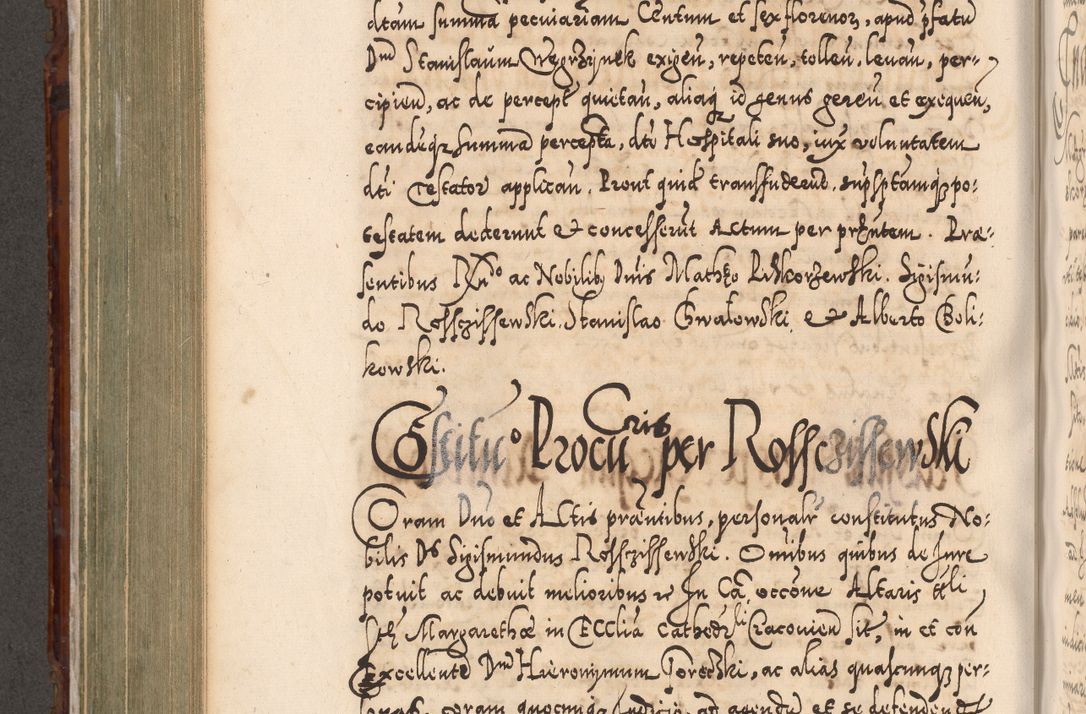 dtam summã pecuiariam Centum et sex florenor, apud pfatũ
Dnũ Stanislaum Węgrzÿnek exigeñ, repeteñ, tolleñ, levañ, per-
cipieñ, ac de percept quietañ, aliaq id genus gereñ et exequeñ,
eandeqz summã percepta, dti Hospitali suo, iux voluntatem
dti Testator applicañ. Prout quid transfuderunt, supsptamqz po-
testatem dederunt et concesserũt Actum per prntem. Præ-
sentibus Rndo ac Nobilib Dnis Mathęo Piskorzewski. Sigismũ-
do Rossczissewski. Stanislao Gwałowski et Alberto Boli-
kowski.
Cõstitũo Procũ Cris per Rossczissewski
Coram Dnõ et Actis præntibus, personalr constitutus No-
bilis Ds Sigismundus Rossczissewski. Omĩbus quibus de Jure
potuit ac debuit melioribus re In Cã, occõne Altaris tt li
Stæ Margarethæ in Ecclia Cathedrli Cracovieñ sit, in et con
Excellente Dnũ Hieronÿmum Torecski, ac alias quascunqz per-
sonas, coram quocunq Judicio, ad agendũ et se defendendũ